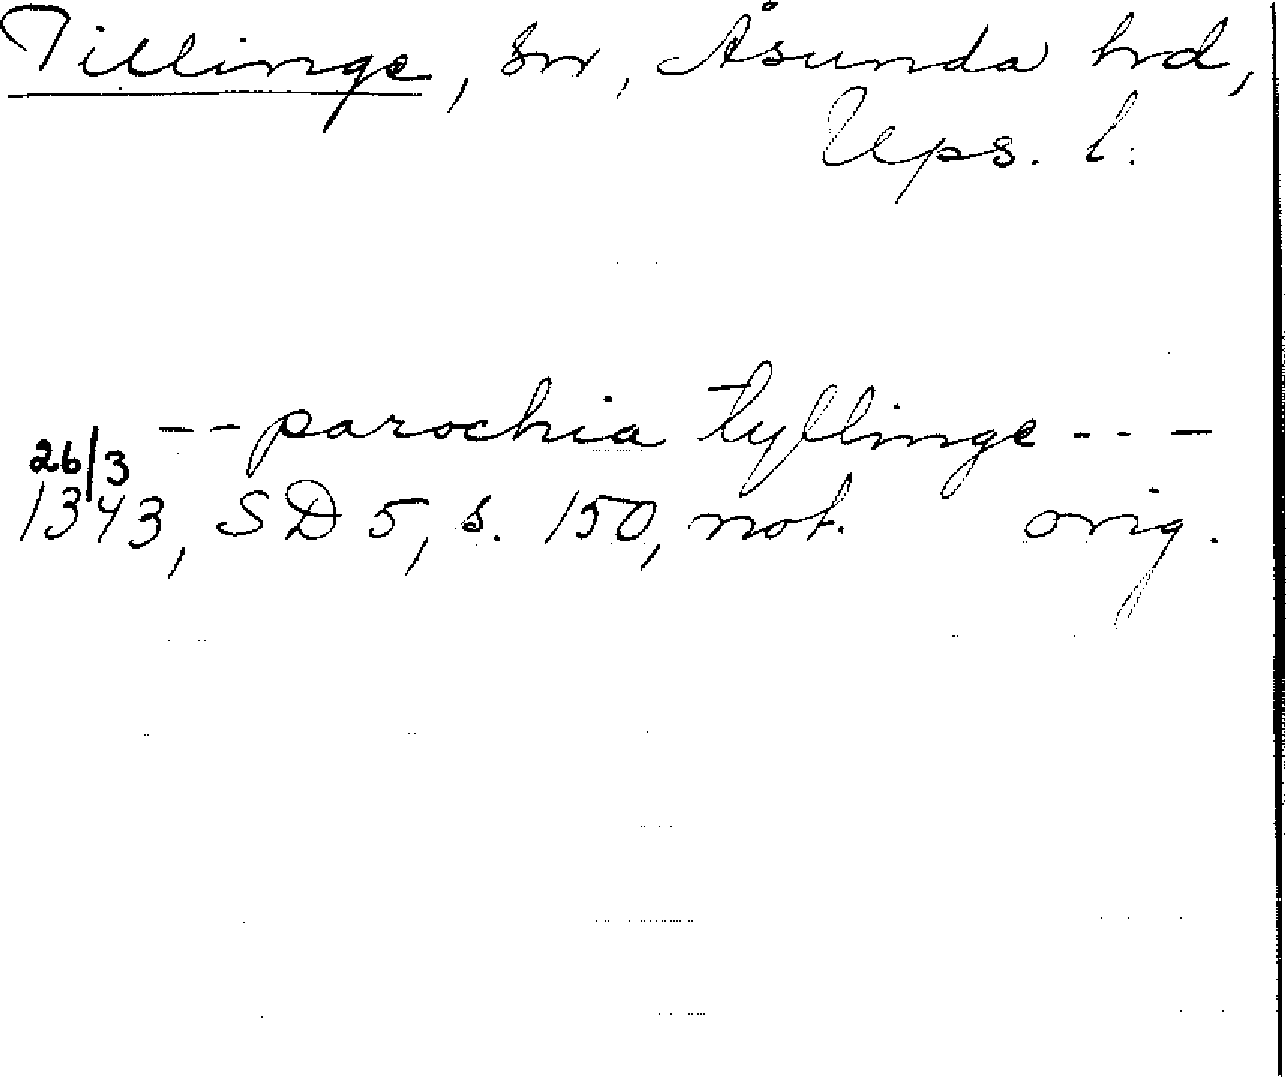 Tillinge, sn, Åsunda hrd,
Ups. l.
-- parochia tyllinge ---
26/3
1343, SD 5, s. 150, not. orig.